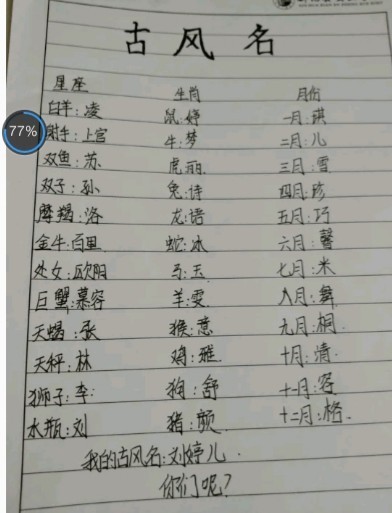 古风名
星座 生肖 月份
白羊：凌 鼠：婷 一月：琪
77%
射手：上官 牛：梦 二月：儿
双鱼：苏 虎：丽 三月：雪
双子：孙 兔：诗 四月：珍
摩羯：洛 龙：语 五月：巧
金牛：百里 蛇：冰 六月：馨
处女：欧阳 马：玉 七月：米
巨蟹：慕容 羊：雯 八月：舞
天蝎：张 猴：意 九月：桐
天秤：林 鸡：雅 十月：清
狮子：李 狗：舒 十一月：容
水瓶：刘 猪：颜 十二月：格
我的古风名：刘婷儿
你们呢？